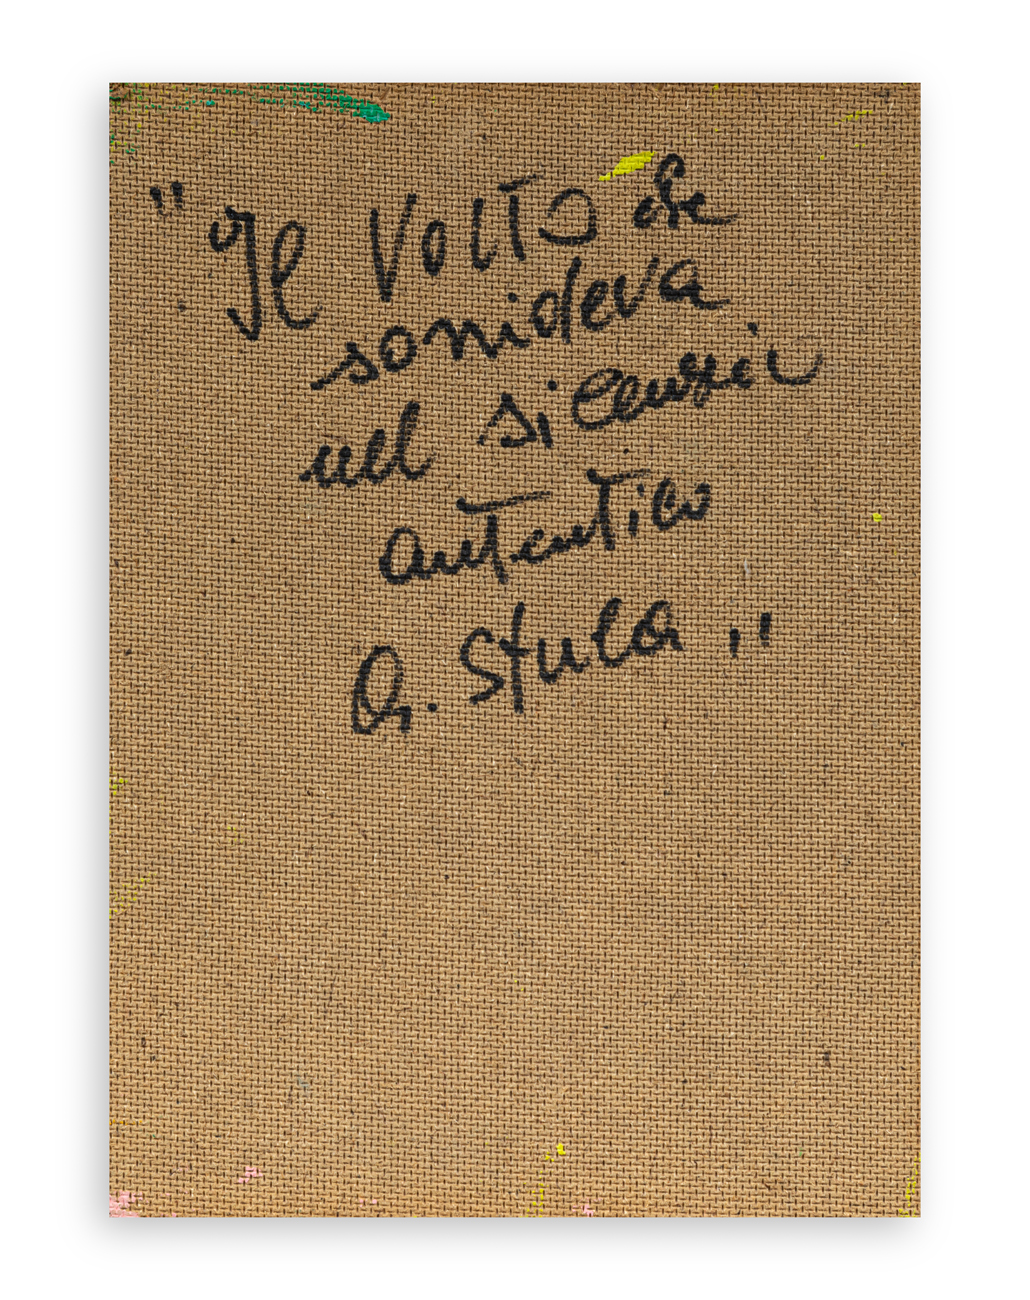 "Il Volto che
sorrideva
nel silenzio
autentico
G. Stula"